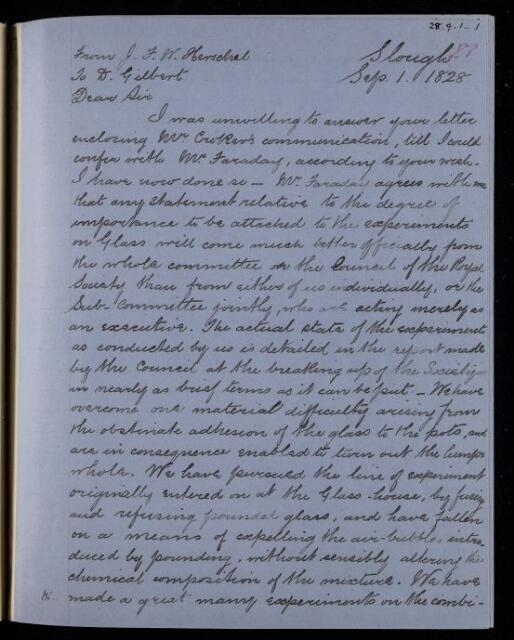 28.9.1.1
87
From J. F. W. Herschel Slough
To D. Gilbert Sep. 1. 1828
Dear Sir
I was unwilling to answer your letter
enclosing Mr. Croker's communication, till I could
confer with Mr. Faraday, according to your wish.
I have now done so — Mr. Faraday agrees with me
that any statement relative to the degree of
importance to be attached to the experiments
on Glass will come much better officially from
the whole committee or the Council of the Royal
Society than from either of us individually, or the
Sub-Committee jointly, who are acting merely as
an executive. The actual state of the experiments
as conducted by us is detailed in the report made
by the Council at the breaking up of the Society
in nearly as brief terms as it can be put — We have
overcome one material difficulty arising from
the obstinate adhesion of the glass to the pots, and
are in consequence enabled to turn out the lumps
whole. We have pursued the line of experiment
originally entered on at the Glass-house, by fusing
and refusing pounded glass, and have fallen
on a means of expelling the air-bubbles intro-
duced by pounding, without sensibly altering the
chemical composition of the mixture. We have
made a great many experiments on the combi-